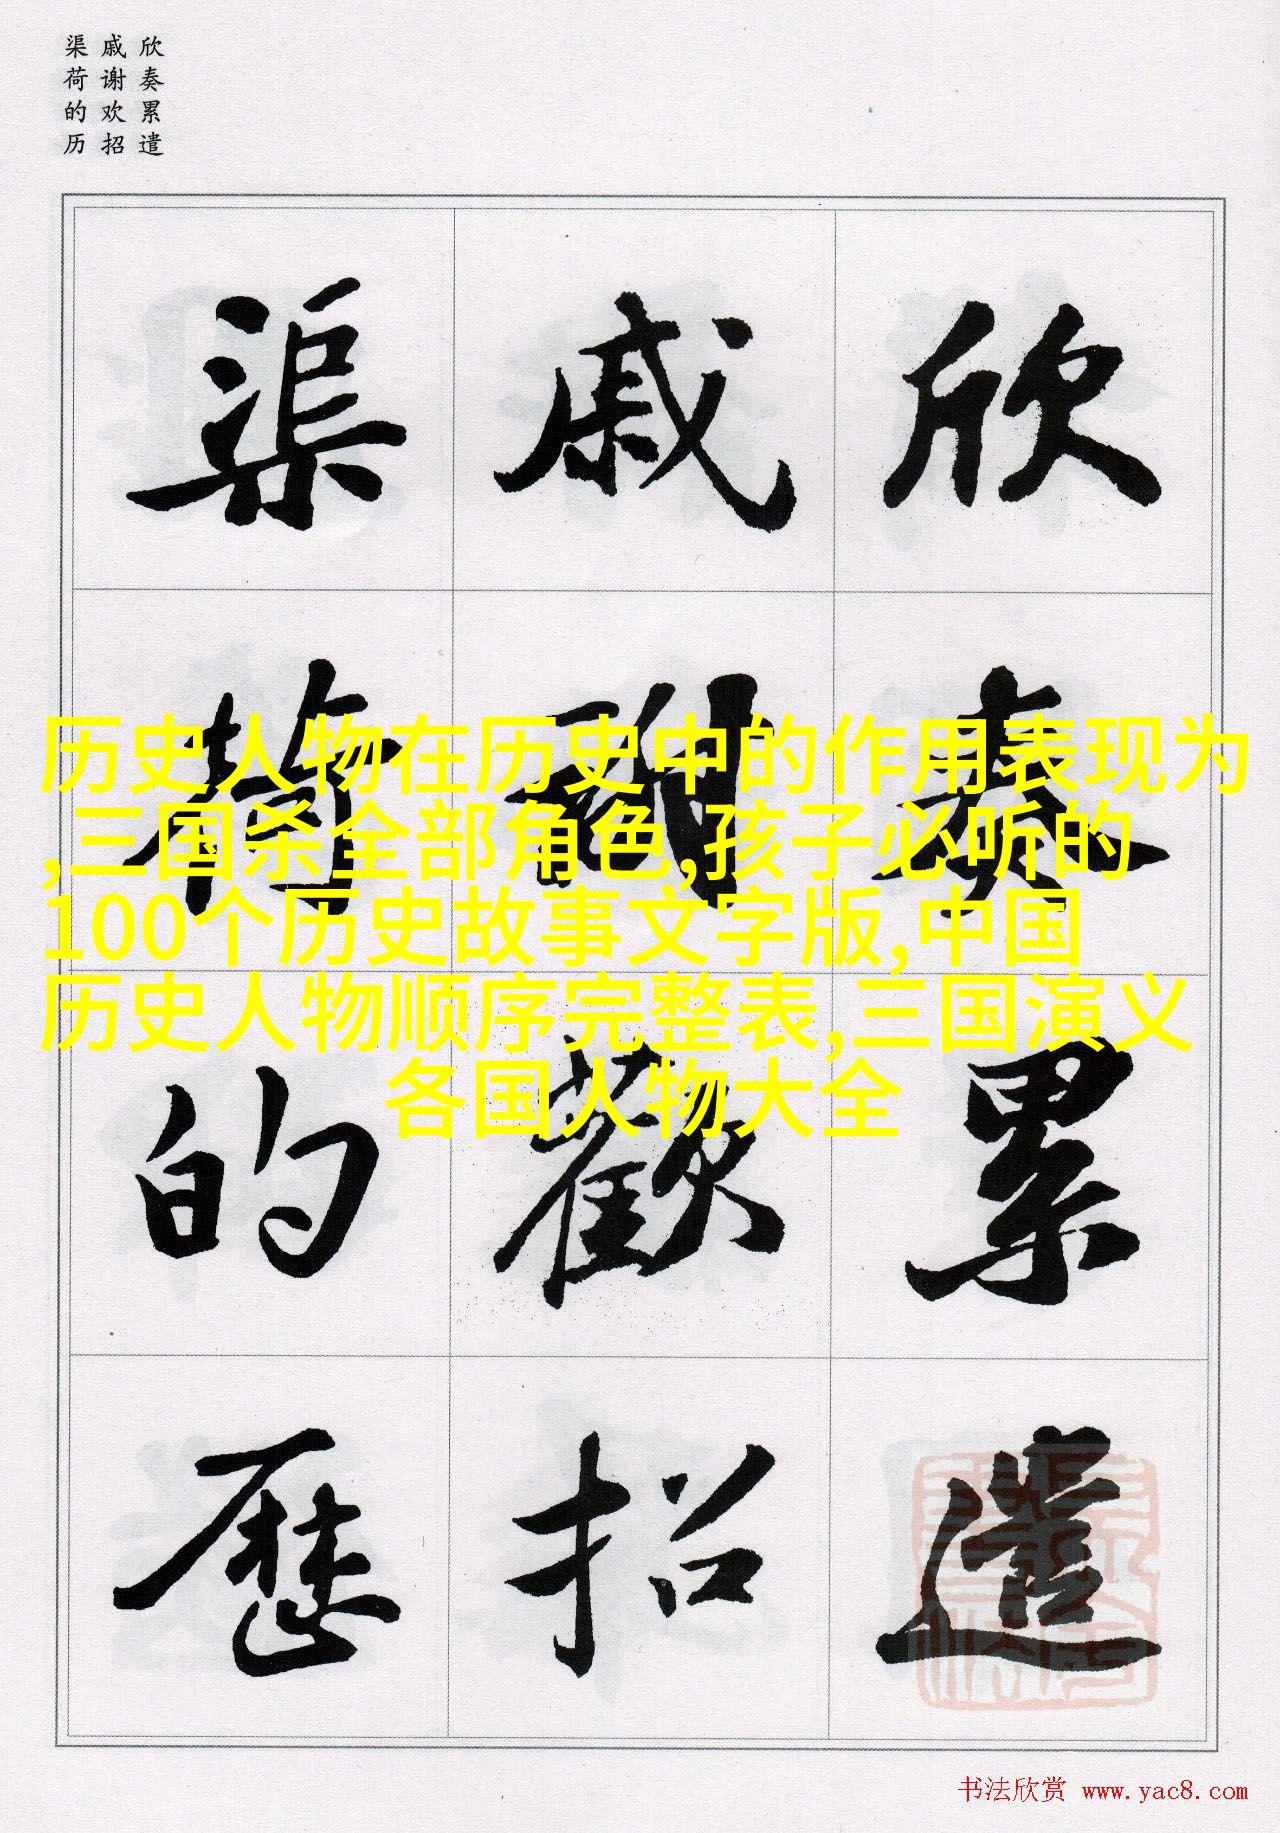 欣奏累遣
戚谢欢招
渠荷的历
欣奏累遣
戚謝歡招
渠荷的歷
历史人物在历史中的作用表现为
,三国杀全部角色,孩子必听的
100个历史故事文字版,中国
历史人物顺序完整表,三国演义
各国人物大全
书法欣赏 www.yac8.com